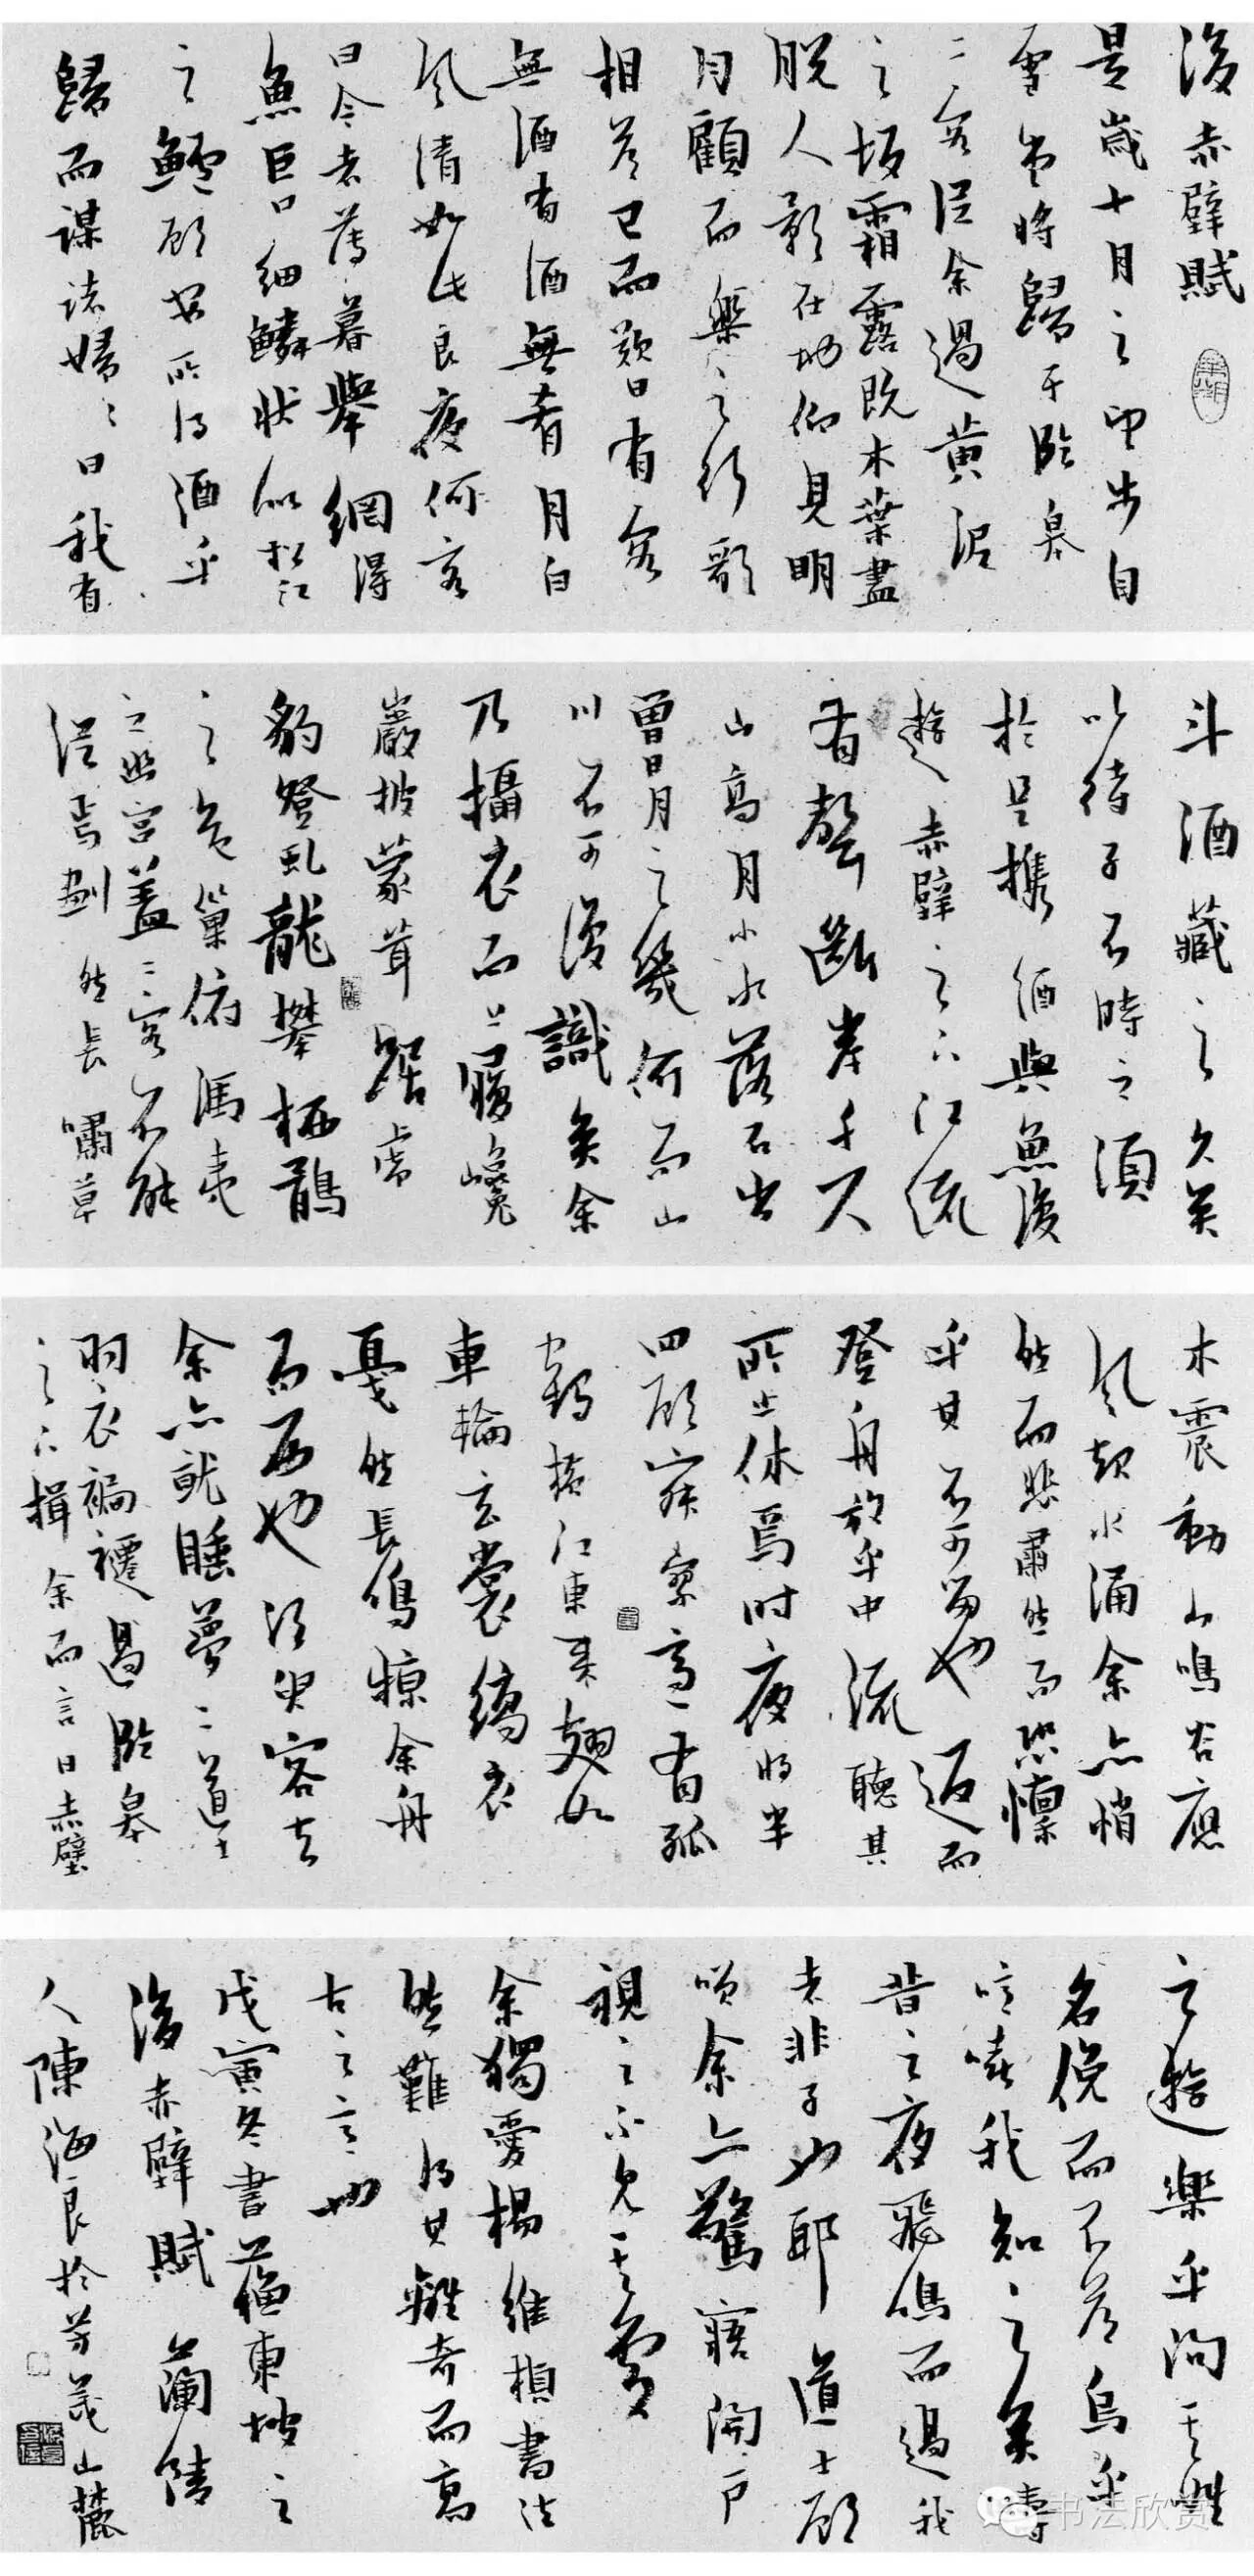 後赤壁賦
是歲十月之望步自
雪堂將歸于臨皋
二客從余過黃泥
之坂霜露既木葉盡
脫人影在地仰見明
月顧而樂之行歌
相答已而歎曰有客
無酒有酒無肴月白
風清如此良夜何客
曰今者薄暮舉網得
魚巨口細鱗狀似松江
之鱸顧安所得酒乎
歸而謀諸婦婦曰我有
斗酒藏之久矣
以待子不時之須
於是攜酒與魚復
遊赤壁之下江流
有聲斷岸千尺
山高月小水落石出
曾日月之幾何而山
川不可復識矣余
乃攝衣而上履巉
巖披蒙茸踞虎
豹登虬龍攀栖鶻
之危巢俯馮夷
之幽宮蓋二客不能
從焉劃然長嘯草
木震動山鳴谷應
風起水涌余亦悄
然而悲肅然而恐凜
乎其不可留也返而
登舟放乎中流聽其
所止休焉時夜將半
四顧寂寥適有孤
鶴橫江東來翅如
車輪玄裳縞衣
戛然長鳴掠余舟
而西也須臾客去
余亦就睡夢二道士
羽衣褊襳過臨皋
之下揖余而言曰赤壁
之遊樂乎問其姓
名俛而不答烏乎
噫嘻我知之矣疇
昔之夜飛鳴而過我
者非子也耶道士顧
笑余亦驚寤開戶
視之不見其處
余獨愛楊維楨書法
然難得其離奇而高
古之意也
戊寅冬書蘇東坡之
後赤壁賦蘭陵
人陳海良於芳茂山麓
书法欣赏